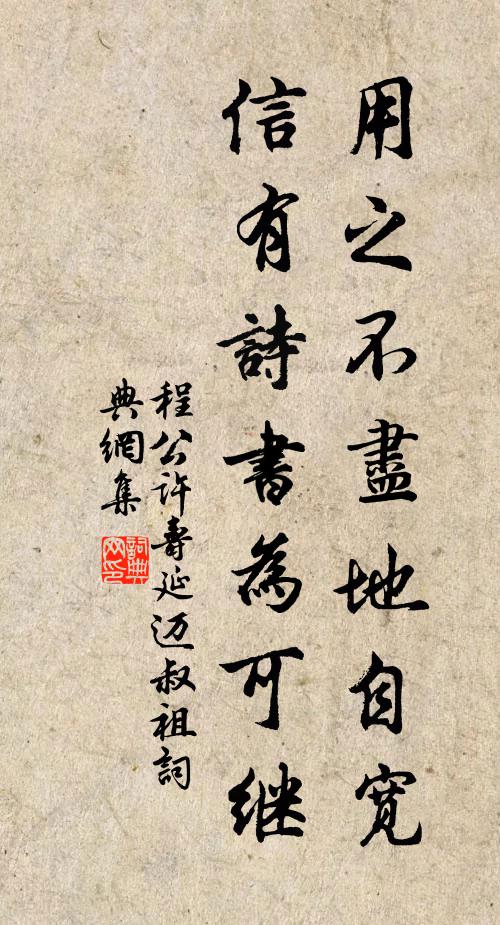 用之不盡地自寬
信有詩書為可继
程公许壽延迈叔祖詞
典網集
詞典
网印